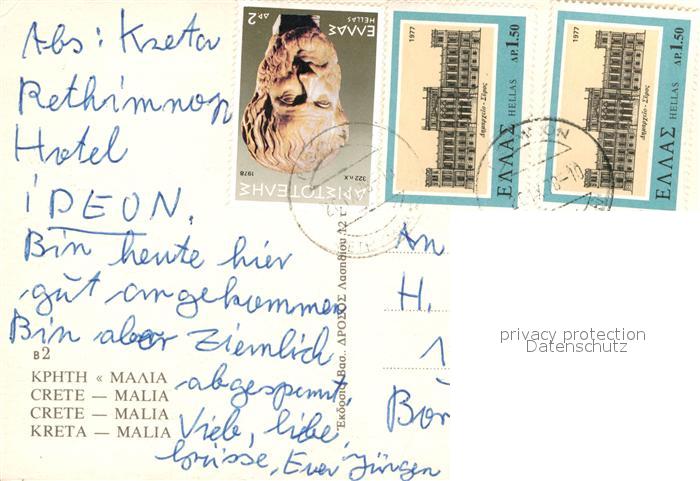 Abs: Kreta
Rethimnon
Hotel
IDEON.
Bin heute hier
gut angekommen
Bin aber ziemlich
abgespannt,
Viele, liebe,
Grüsse, Euer Jürgen
B2
ΚΡΗΤΗ « ΜΑΛΙΑ
CRETE — MALIA
CRETE — MALIA
KRETA — MALIA
Έκδοσις Βασ.. ΔΡΟΣΟΣ Λασηθίου 12
An
H.
1
Bör
privacy protection
Datenschutz
ΕΛΛΑΣ
HELLAS
ΔΡ 2
ΑΡΙΣΤΟΤΕΛΗΣ
322 π.Χ
1978
1977
ΔΡ. 1.50
Δημαρχείο - Σύρος
ΕΛΛΑΣ HELLAS
1977
ΔΡ. 1.50
Δημαρχείο - Σύρος
ΕΛΛΑΣ HELLAS